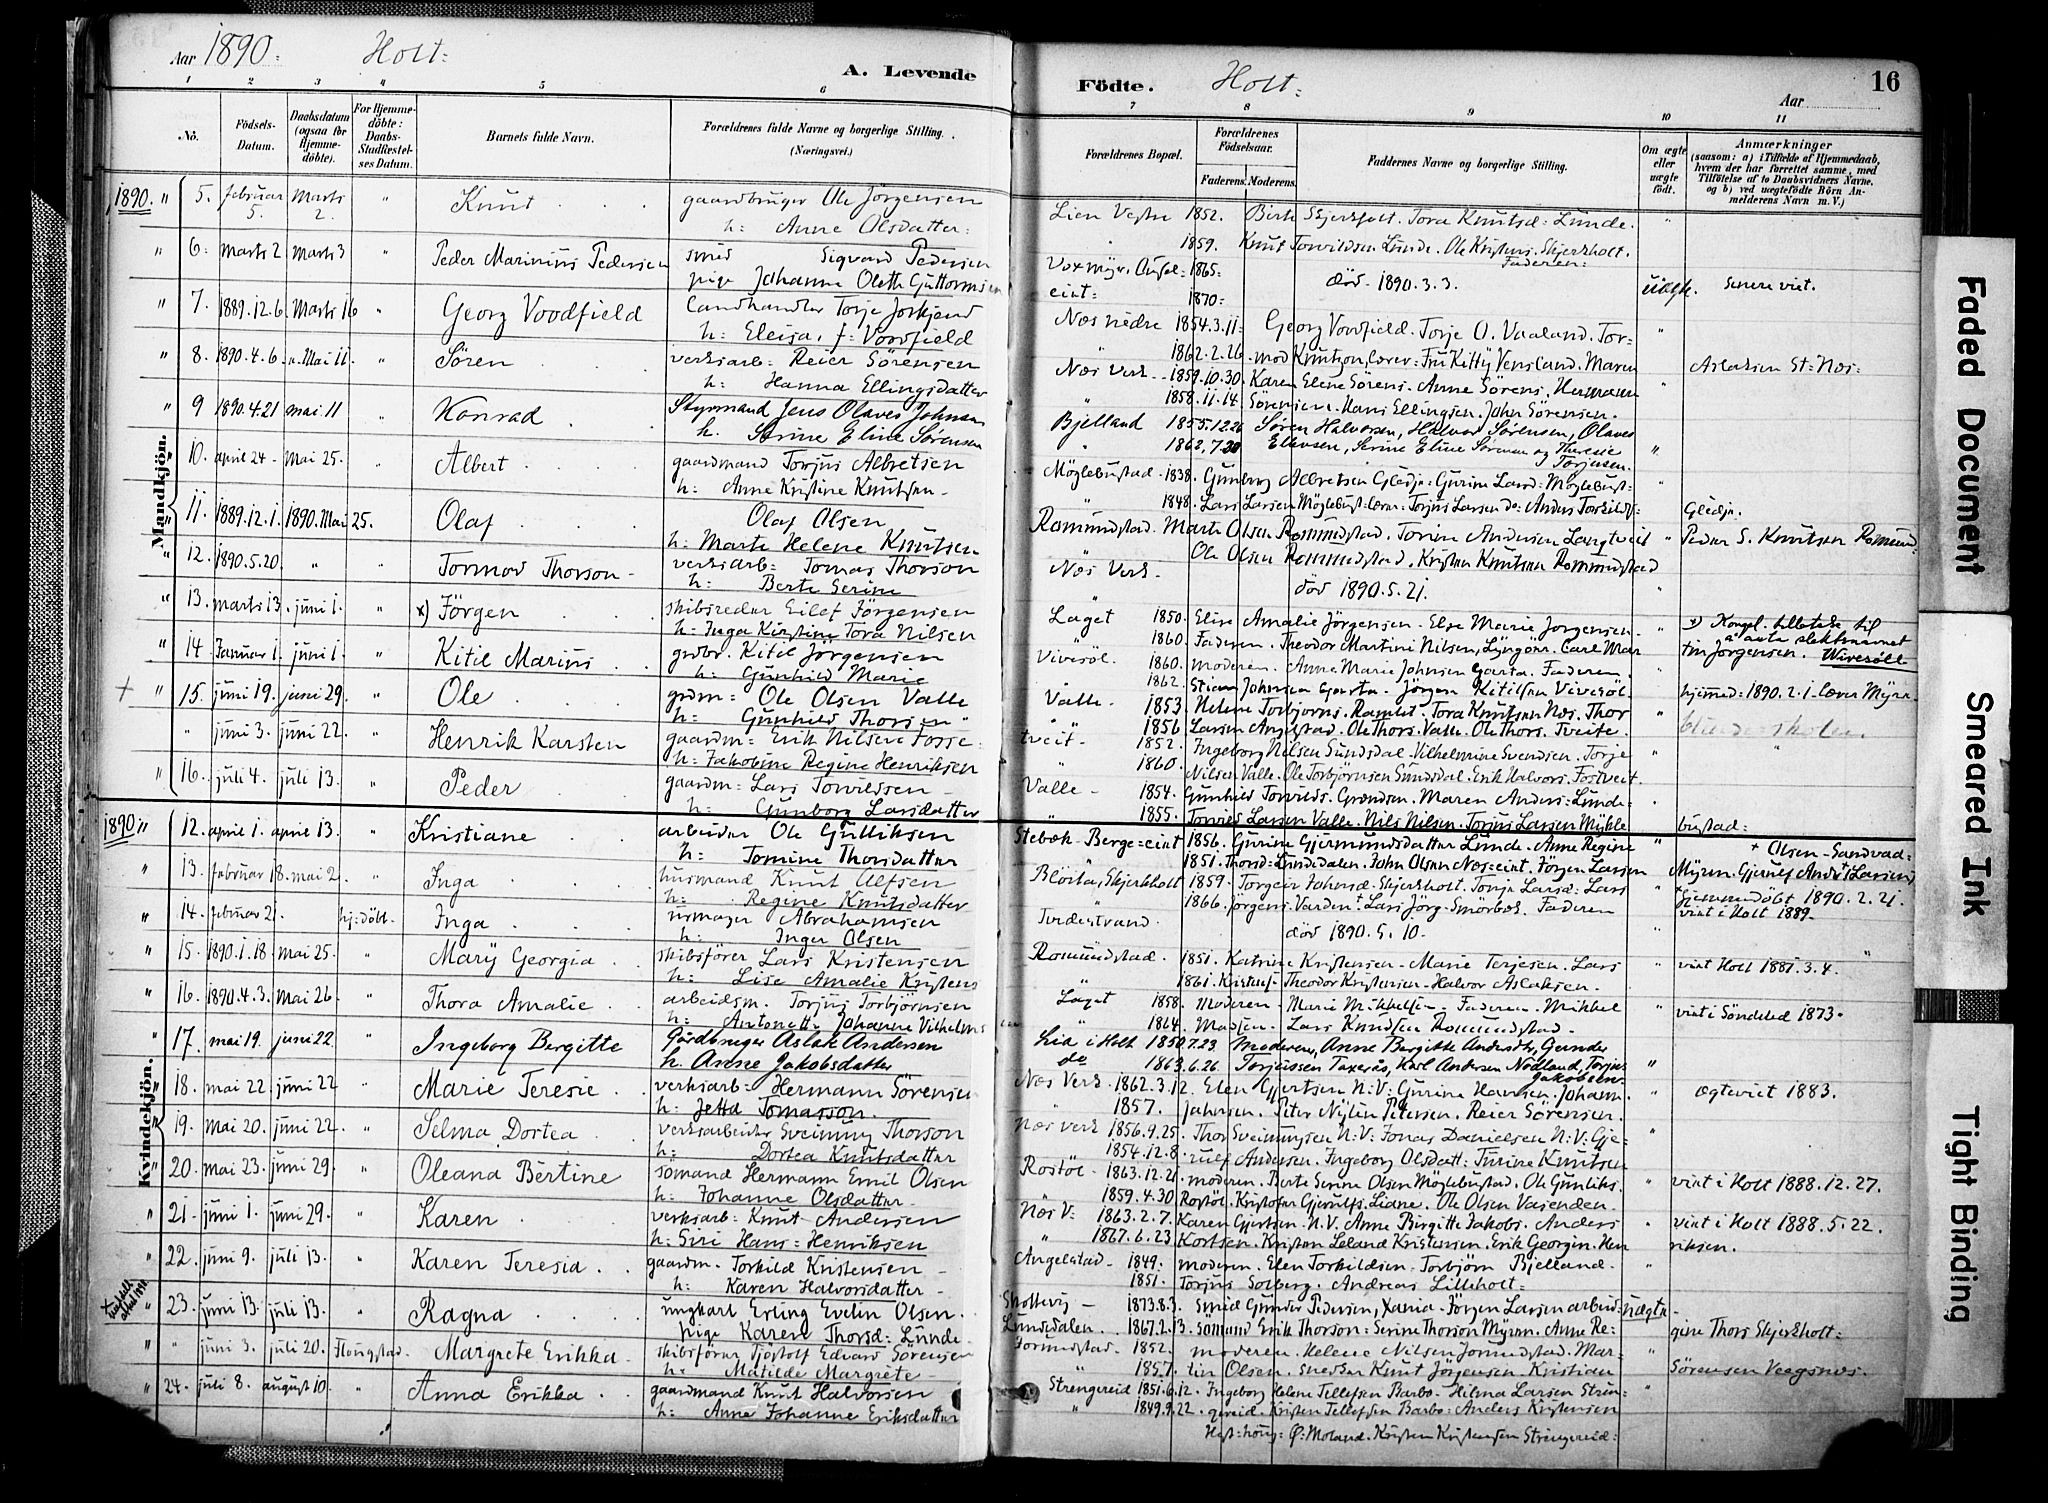 Aar 1890. Holt: A. Levende
Födte. Holt: Aar 16
1 2 3 4 5 6
7 8 9 10 11
No. Födsels-Datum. Daabsdatum (ogsaa for Hjemmedöbte). For Hjemmedöbte: Daabs-Stadfæstelses Datum. Barnets fulde Navn. Forældrenes fulde Navne og borgerlige Stilling. (Næringsvei.)
Forældrenes Bopæl. Forældrenes Födselsaar. Faderens. Moderens. Faddernes Navne og borgerlige Stilling. Om ægte eller uægte født. Anmærkninger (saasom: a) i Tilfælde af Hjemmedaab, hvem der har forrettet samme, med Tilföielse af to Daabsvidners Navne, og b) ved uægtefödte Börn Anmelderens Navn m. V.)
Mandkjön.
1890. " 5. februar 5. Marts 2. " Knut gaardbruger Ole Jörgensen
h: Anne Olsdatter:
" 6. Marts 2. Marts 3 " Peder Marinius Pedersen smed Sigvard Pedersen
pige Johanne Oleth Guttormsen
" 7. 1889.12.6. Marts 16 " Georg Voodfield Landhandler Torje
h: Eleisa, f: Voodfield
" 8. 1890.4.6. Mai 11. " Sören verksarb: Reier Sörensen
h: Hanna Ellingsdatter
" 9 1890.4.21 mai 11 " Konrad Styrmand Jens Olaves Johnsen
h. Serine Eline Sörensen
10. april 24 Mai 25. " Albert gaardmand Torjus Albretsen
h: Anne Kristine Knutsen
" 11. 1889.12.1. 1890. Mai 25. Olaf Olaf Olsen
h: Marte Helene Knutsen
" 12. 1890.5.20. " Tormod Thorson verksarb: Tomas Thorson
h: Berte Serine
" 13. marts 13. juni 1. " x) Jörgen skibsreder Eilef Jörgensen
h: Inga Kirstine Tora Nilsen
" 14 Januar 1. juni 1. " Kitil Marius grdbr. Kitil Jörgensen
h: Gunhild Marie
+ " 15. juni 19. juni 29. " Ole grdm: Ole Olsen Valle
h: Gunhild Thorsen
" juni 3. juni 22. " Henrik Karsten gaardm: Erik Nilsen Fosse
h: Jakobine Regine Henriksen
" 16. juli 4. juli 13. " Peder gaardm: Lars Torvildsen
h: Gunborg Larsdatter
Lien Vestre 1852. Birte Skjerkholt. Tora Knutsd: Lunde.
" 1859. Knut Torvildsen Lunde. Ole Kristens. Skjerkholt. Faderen:
Voxmyr. 1865: död. 1890.3.3. uægte. Senere viet.
1870:
Næs nedre 1854.3.11: Georg Voodfield. Torje O. Vaaland. Tor-
1862.2.26. mod Knutson, lærer. Fru Kitty Vensland. Maren Aslaksen St: Næs:
Næs Verk 1859.10.30. Karen Eline Sörens. Anne Sörens. Hermann
" 1858.11.14. Sörensen. Hans Ellingsen. John Sörensen.
Bjelland 1855.12.26 Sören Halvorsen, Halvor Sörensen, Olaves
" 1862.7.20 Ellevsen, Serine Eline Sörensen og Therese Torjusen.
Möglebustad. 1838. Gunborg Albretsen Gledje. Gurine Larsd: Möglebust:
" 1848. Lars Larsen Möglebust: Torjus Larsen do: Anders Torkildsf: Gledje.
Romundstad. Marte Olsen Romundstad. Torine Andersen Langtveit " Peder S. Knutsen Romund:
Ole Olsen Romundstad. Kristen Knutsen Romundstad
Næs Verk. död 1890.5.21.
Laget 1850. Elise Amalie Jörgensen. Else Marie Jörgensen. " x) Kongel. tilladelse til
1860. Faderen. Theodor Martini Nilsen, Lyngör. Carl Mar- at anta slektsnavnet
Vivesöl. 1860. moderen. Anne Marie Johnsen Garta. Faderen. tin Jörgensen. Wivesöll
1862. Stian Johnsen Garta. Jörgen Kitilsen Vivesöl. hjemmed: 1890.2.1. lærer Myre.
Valle. 1853. Helene Torbjorns. Ramlet. Tora Knutsen Næs. Thor
" 1856 Larsen Angelstad. Ole Thors. Valle. Ole Thors. Tveite.
tveit 1852. Ingeborg Nilsen Sundsdal. Vilhelmine Svendsen. Torje
" 1860. Nilsen Valle. Ole Torbjörnsen Sundsdal. Erik Halvors. Fostveit.
Valle 1854. Gunhild Torvilds. Grændsen. Maren Anders: Lunde:
" 1855. Torvild Larsen Valle. Nils Nilsen. Torjus Larsen Mykle bustad:
Kvindekjön.
1890 " 12. april 1. april 13. " Kristiane arbeider Ole Gulliksen
h: Tomine Thorsdatter
" 13. februar 18. mai 2. " Inga husmand Knut Alfsen
h: Regine Knutsdatter
" 14. februar 2. hj:döbt. Inga urmager Abrahamsen
h: Inger Olsen
" 15. 1890.1.18. mai 25. " Mary Georgia skibsförer Lars Kristensen
h: Lise Amalie Kristens
" 16. 1890.4.3. Mai 26. " Thora Amalie arbeidsm. Torjus Torbjörnsen
h: Antonette Johanne Vilhelms
" 17. mai 19. juni 22 " Ingeborg Bergitte Gårdbruger Aslak Andersen
h. Anne Jakobsdatter
" 18. mai 22 juni 22 " Marie Teresie verksarb: Hermann Sörensen
h: Jetta Tomasson.
" 19. Mai 20. juni 22. " Selma Dortea verksarbeider Sveinung Thorson
h: Dortea Knutsdatter
" 20. mai 23. juni 29. " Oleana Bertine sömand Hermann Emil Olsen
h: Johanne Olsdatter
" 21. juni 1. juni 29. " Karen verksarb: Knut Andersen
h: Siri Hans: Henriksen
" 22. juni 9. juli 13. " Karen Teresia gaardm. Torkild Kristensen
h: Karen Halvorsdatter
" 23. juni 13. juli 13. " Ragna ungkarl Erling Evelin Olsen.
pige Karen Thorsd: Lunde
" " juni 3. juli 20. Flangstad. Margrete Erikka skibsförer Tjöstolf Edvard Sörensen
h: Matilde Margrete
" 24. juli 8. august 10. " Anna Erikka gaardmand Knut Halvorsen
h: Anne Johanne Eriksdatter
Stebæk. Berge=eiet 1856. Gurine Gjermundsdatter Lunde. Anne Regine " + Olsen Sandvad=
1851. Thorsd: Lundedalen. John Olsen Næs=eiet. Jörgen Larsen Myren. Gjerulf Andr: Larsen,
Skjerkholt 1859. Torgeir Jahnsd: Skjerkholt. Tonje Larsd: Lars " hjemmedöbt 1890.2.21.
1866. Jörgens. Varden. Lars Jörg. Smörbek. Faderen viet i Holt 1889.
Tvedestrand. död 1890.5.10. "
Romundstad. 1851. Katrine Kristensen. Marie Terjesen. Lars " viet Holt 1881.3.4.
1861. Kristens: Theodor Kristensen. Halvor Aslaksen.
Laget 1858. Moderen. Marie Mikkelsen. Faderen. Mikkel " viet i Söndeled 1873.
" 1864. Madsen. Lars Knudsen Romundstad.
Lia i Holt 1850.7.23. Moderen, Anne Bergitte Andersdtr, Gunder
do 1863.6.26. Torjussen Taxerås, Karl Andersen Nödland, Torjus Jakobsen. "
Næs Verk. 1862.3.12. Elen Gjertsen N:V: Gurine Hansen. Johann. " Ægteviet 1883.
" 1857. Jahnsen. Peter Nylin Petersen. Reier Sörensen.
Næs verk 1856.9.25. Thor Sveinungsen N:V: Jonas Danielsen N:V: Gje- "
1854.12.8. rulf Andersen. Ingeborg Olsdatt: Turine Knutsen
Rostöl. 1863.12.21. moderen. Berte Serine Olsen Möglebustad. Ole Gunliks. " viet i Holt 1888.12.27.
1859.4.30 Rostöl. Kristofer Gjerulfs. Liane. Ole Olsen Vasenden.
Næs V: 1863.2.7. Karen Gjertsen N.V. Anne Birgitte Jakobs. Anders " viet i Holt 1888.5.22.
" 1867.6.23 Kortsen. Kristen Leland Kristensen. Erik Georgin. Hen riksen.
Angelstad 1849. moderen. Elen Torkildsen. Torbjörn Bjelland. "
1851. Torjus Solberg. Andreas Lilleholt.
1873.8.3. Smed Gunder Pedersen, Xania. Jörgen Larsen arbeid: uægte
Lundedalen. 1867.2.13. Sömand Erik Thorson: Serine Thorson Myren. Anne Re- gine Thors Skjerkholt:
1852. moderen. Helene Nilsen Jomundstad. Mar- "
" 1857. tin Olsen. Snedker Knut Jörgensen. Kristian Sörensen Veegsnæs.
Strengereid 1851.6.12. Ingeborg Helene Tellefsen Barbo. Hilma Larsen Stren= "
" 1849.9.22. gereid. Kristen Tellefsen Barbo. Anders Kristensen
Ö: Moland. Kristen Kristensen Strengereid:
Faded Document
Smeared Ink
Tight Binding